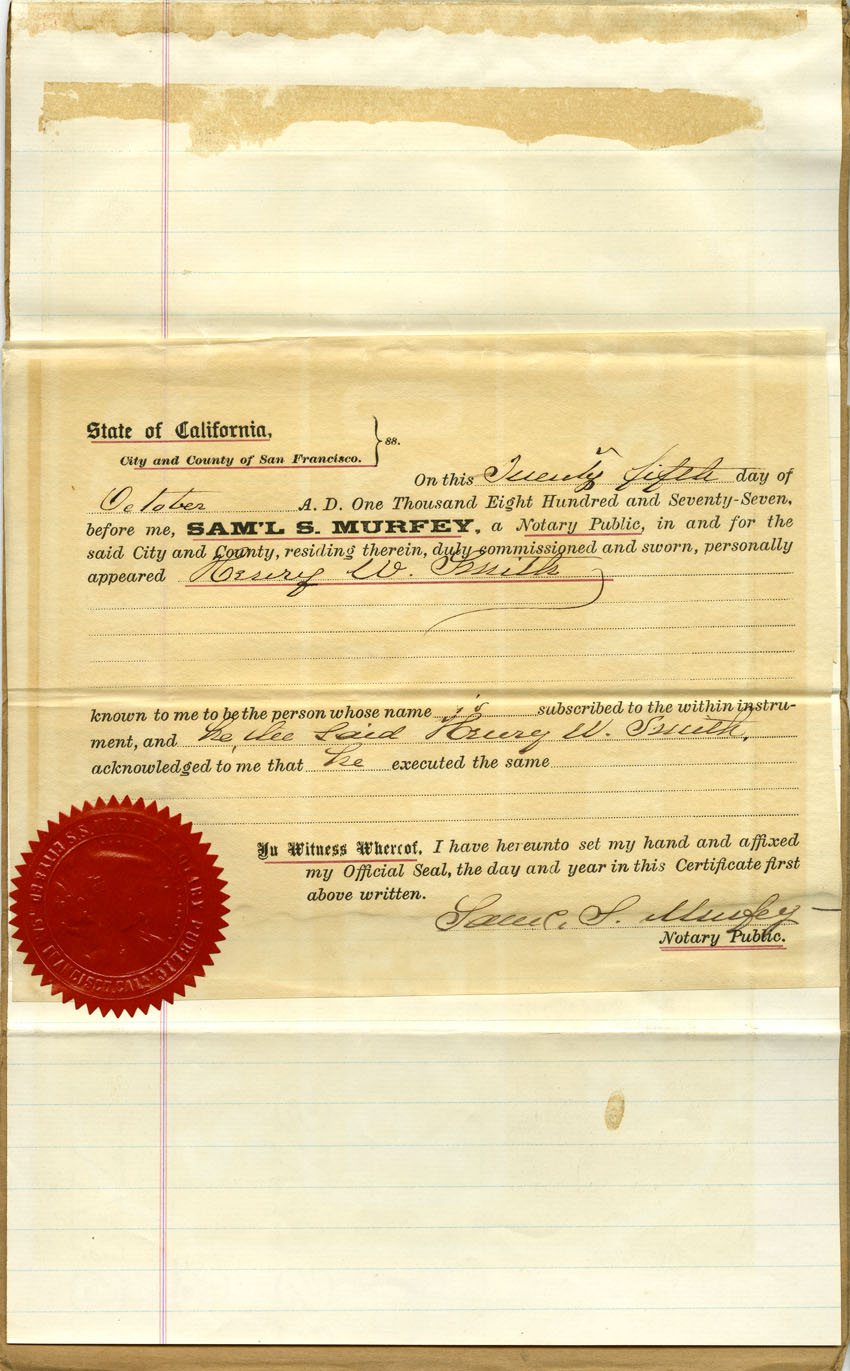 State of California,
City and County of San Francisco. } ss.
On this Twenty fifth day of
October A. D. One Thousand Eight Hundred and Seventy-Seven,
before me, SAM'L S. MURFEY, a Notary Public, in and for the
said City and County, residing therein, duly commissioned and sworn, personally
appeared Henry W. Smith
known to me to be the person whose name is subscribed to the within instru-
ment, and he, the said Henry W. Smith,
acknowledged to me that he executed the same
In Witness Whereof, I have hereunto set my hand and affixed
my Official Seal, the day and year in this Certificate first
above written.
Saml. S. Murfey
Notary Public.
NOTARY PUBLIC
FRANCISCO, CAL.